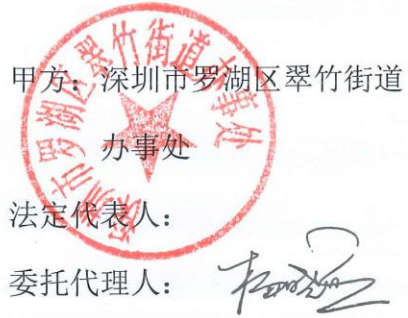 甲方：深圳市罗湖区翠竹街道
办事处
法定代表人：
委托代理人：
深圳市罗湖区翠竹街道办事处